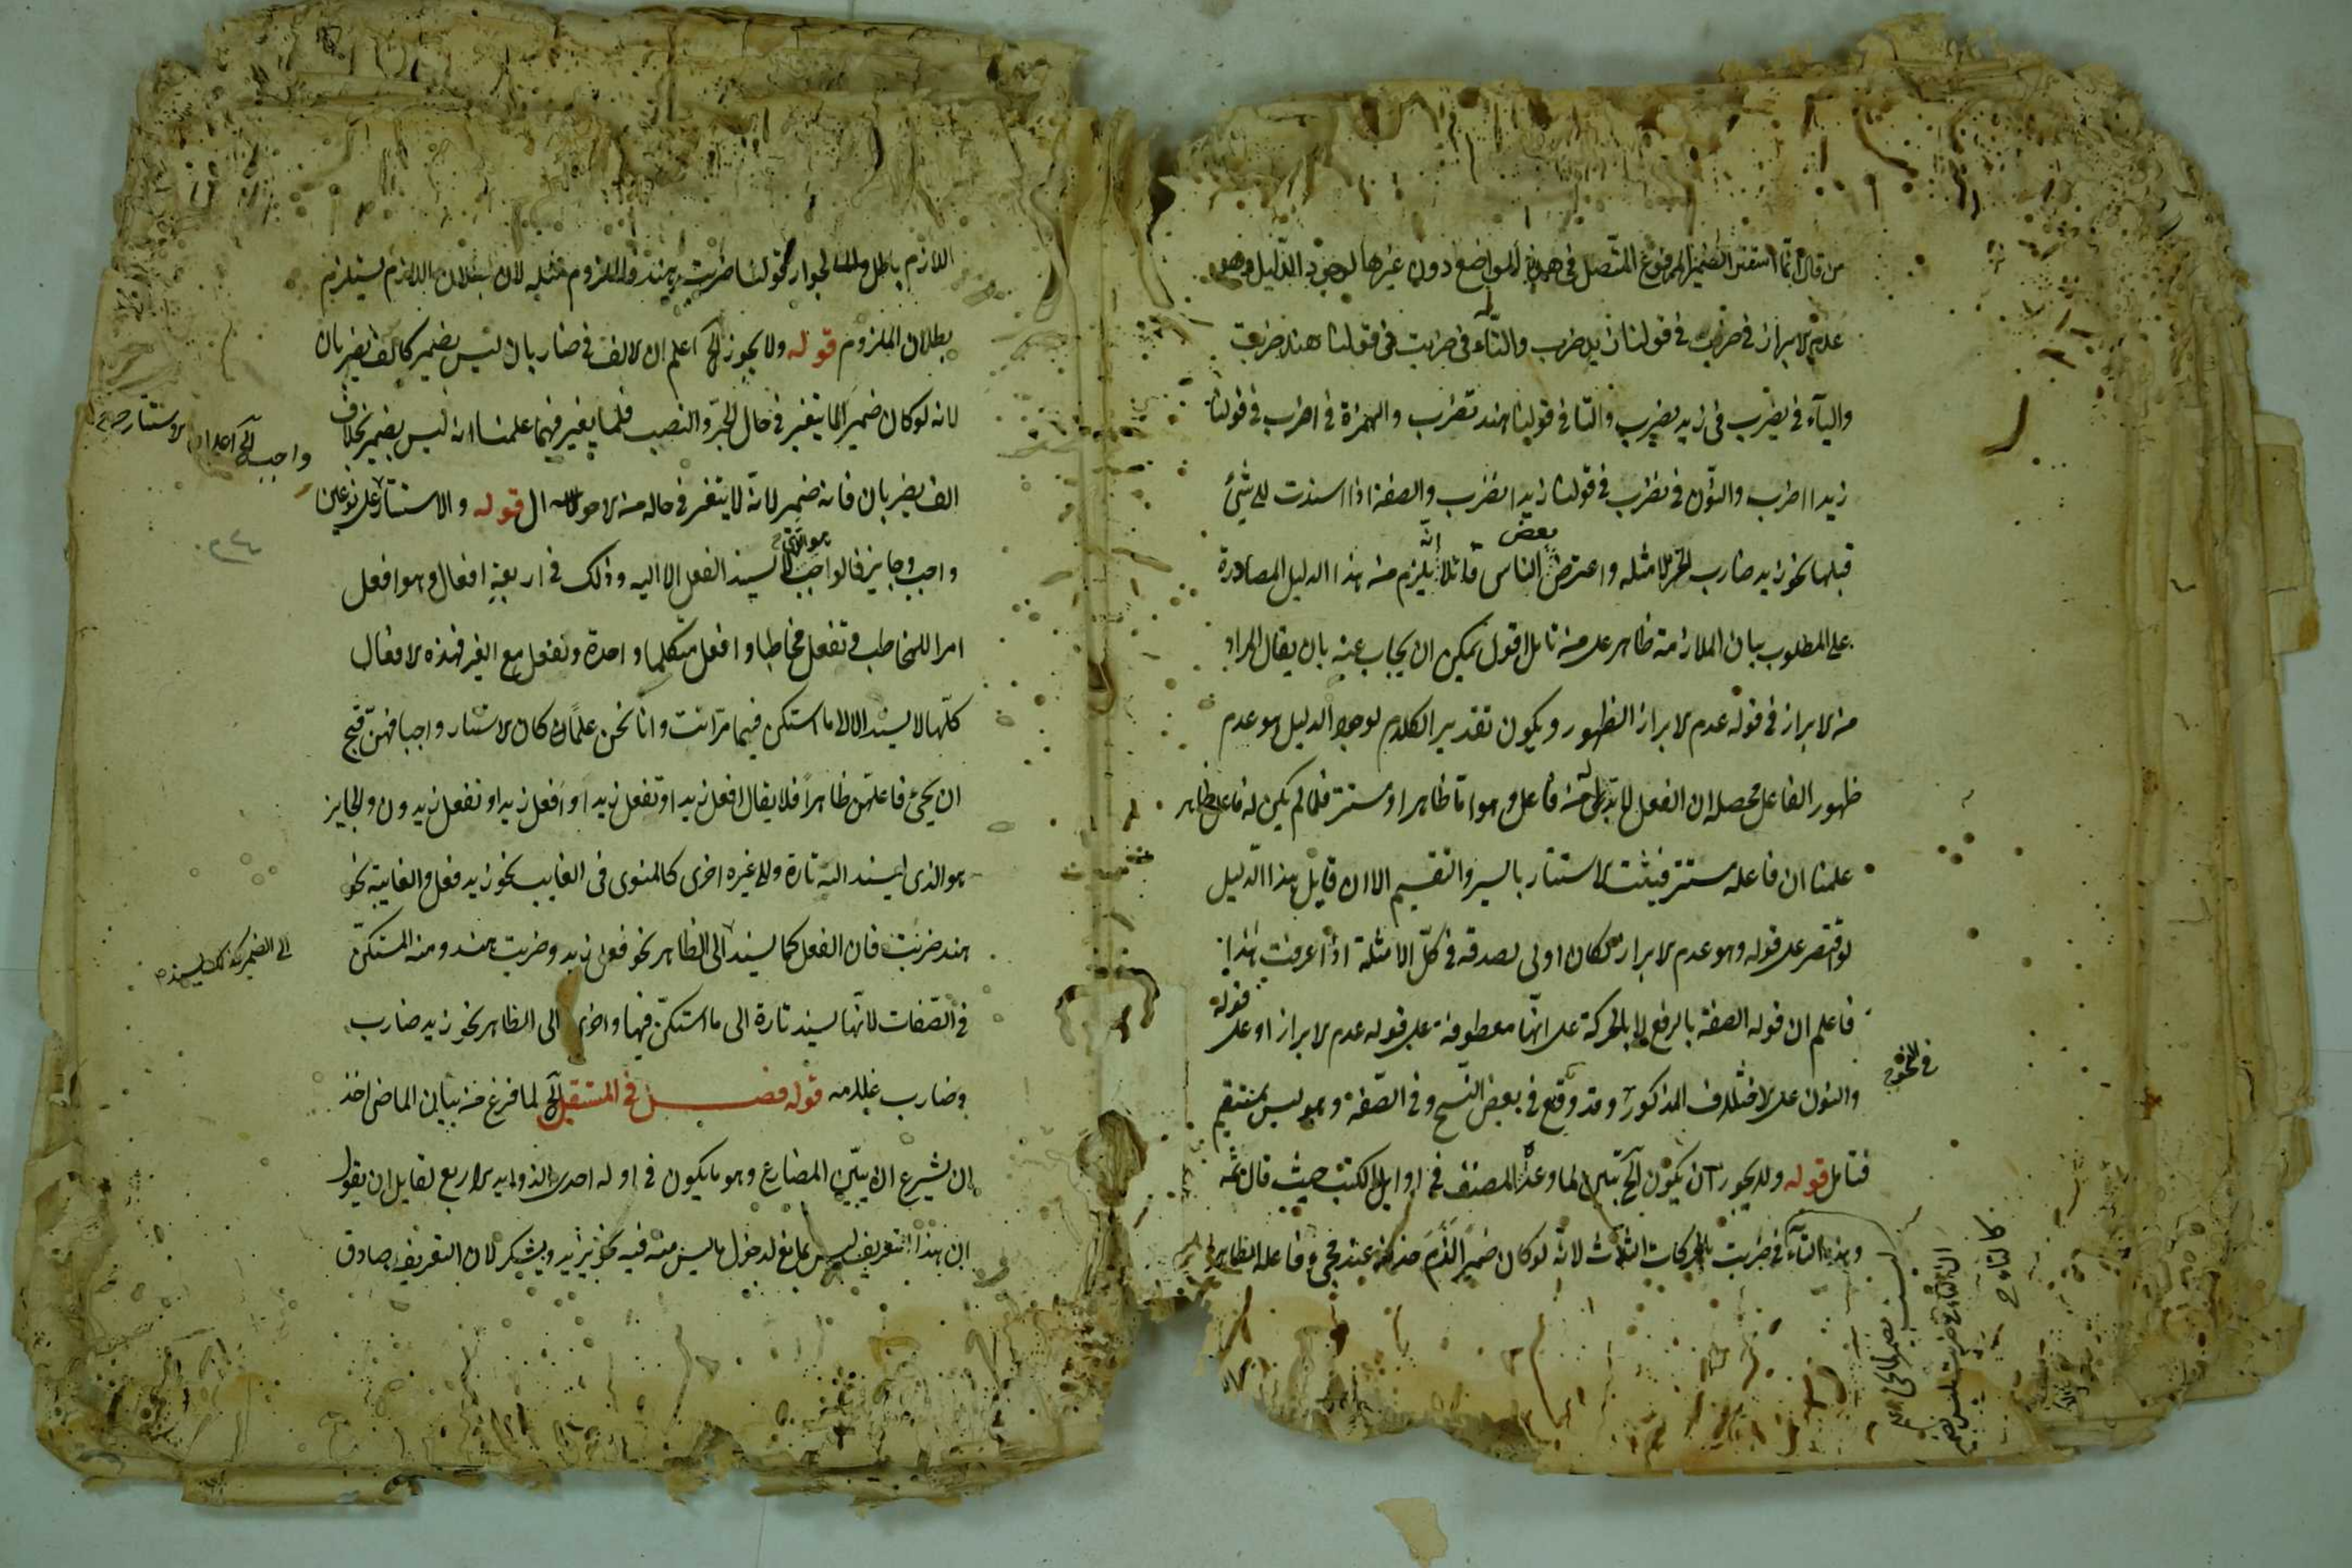 من قال انما استتر الضمير المرفوع المتصل في هذه المواضع دون غيرها لوجود الدليل وهو
عدم الابراز في ضرب في قولنا زيد ضرب والتاء في ضربت في قولنا هند ضربت
والياء في يضرب في زيد يضرب والتا في قولنا هند تضرب والهمزة في اضرب في قولنا
زيدا اضرب والنون في نضرب في قولنا زيدا نضرب والصفة اذا اسندت الى شئ
قبلها نحو زيد ضارب واعترض بعض الناس قائلا انه يلزم منه هذا الدليل المصادرة
على المطلوب بيان الملازمة ظاهر على من تامل اقول يمكن ان يجاب عنه بان يقال المراد
من الابراز في قوله عدم الابراز الظهور ويكون تقدير الكلام لوجود الدليل هو عدم
ظهور الفاعل محصله ان الفعل لابد له من فاعل وهو اما ظاهر او مستتر فلما لم يكن له فاعل ظاهر
علمنا ان فاعله مستتر فيثبت الاستتار بالسبر والتقسيم الا ان قايل هذا الدليل
لو اقتصر على قوله وهو عدم الابراز لكان اولى لصدقه في كل الامثلة اذا عرفت هذا
فاعلم ان قوله الصفة بالرفع لا بالحركة على انها معطوفة على قوله عدم الابراز او على قوله
والنون على الاختلاف المذكور وقد وقع في بعض النسخ وفي الصفة وهو ليس بمستقيم
فتامل قوله ولا يجوز ان يكون الخ تبين لما وعد المصنف في اوايل الكتب حيث قال ثمه
وهذه التاء في ضربت بالحركات الثلاث لانه لو كان ضميرا لزم حذفه عند مجئ فاعله الظاهر
في النحو
كالتاء
اللازم باطل لجواز قولنا ضربت هند والملزوم مثله لان بطلان اللازم يستلزم
بطلان الملزوم قوله ولا يجوز الخ اعلم ان الالف في ضاربان ليس بضمير كالف يضربان
لانه لو كان ضميرا لما يتغير في حال الجر والنصب فلما يغير فيهما علمنا انه ليس بضمير بخلاف
الف يضربان فانه ضمير لانه لا يتغير في حالة من الاحوال قوله والاستتار على نوعين
واجب وجايز فالواجب هو الذي لا يسند الفعل الا اليه وذلك في اربعة افعال وهو افعل
امرا للمخاطب وتفعل مخاطبا وافعل متكلما واحدة ونفعل مع الغير فهذه الافعال
كلها لا يسند الا الى ما استكن فيها من انت وانا نحن علما كان الاستتار واجبا فهن قبح
ان يجئ فاعلهن ظاهرا فلا يقال افعل زيد او تفعل زيد او افعل زيد او نفعل زيدون والجايز
هو الذي يسند اليه تارة والى غيره اخرى كالمنوى في الغايب نحو زيد فعل والغايبة نحو
هند ضربت فان الفعل كما يسند الى الظاهر نحو فعل زيد وضربت هند ومنه المستكن
في الصفات لانها يسند تارة الى ما استكن فيها واخرى الى الظاهر نحو زيد ضارب
وضارب غلامه قوله فصل في المستقبل الخ لما فرغ من بيان الماضي اخذ
ان يشرع ان يبين المضارع وهو ما يكون في اوله احدى الزوايد الاربع لقايل ان يقول
ان هذا التعريف ليس بمانع لدخول ما ليس منه فيه نحو يزيد ويشكر لان التعريف صادق
واجب الخ اعلم ان الاستتار